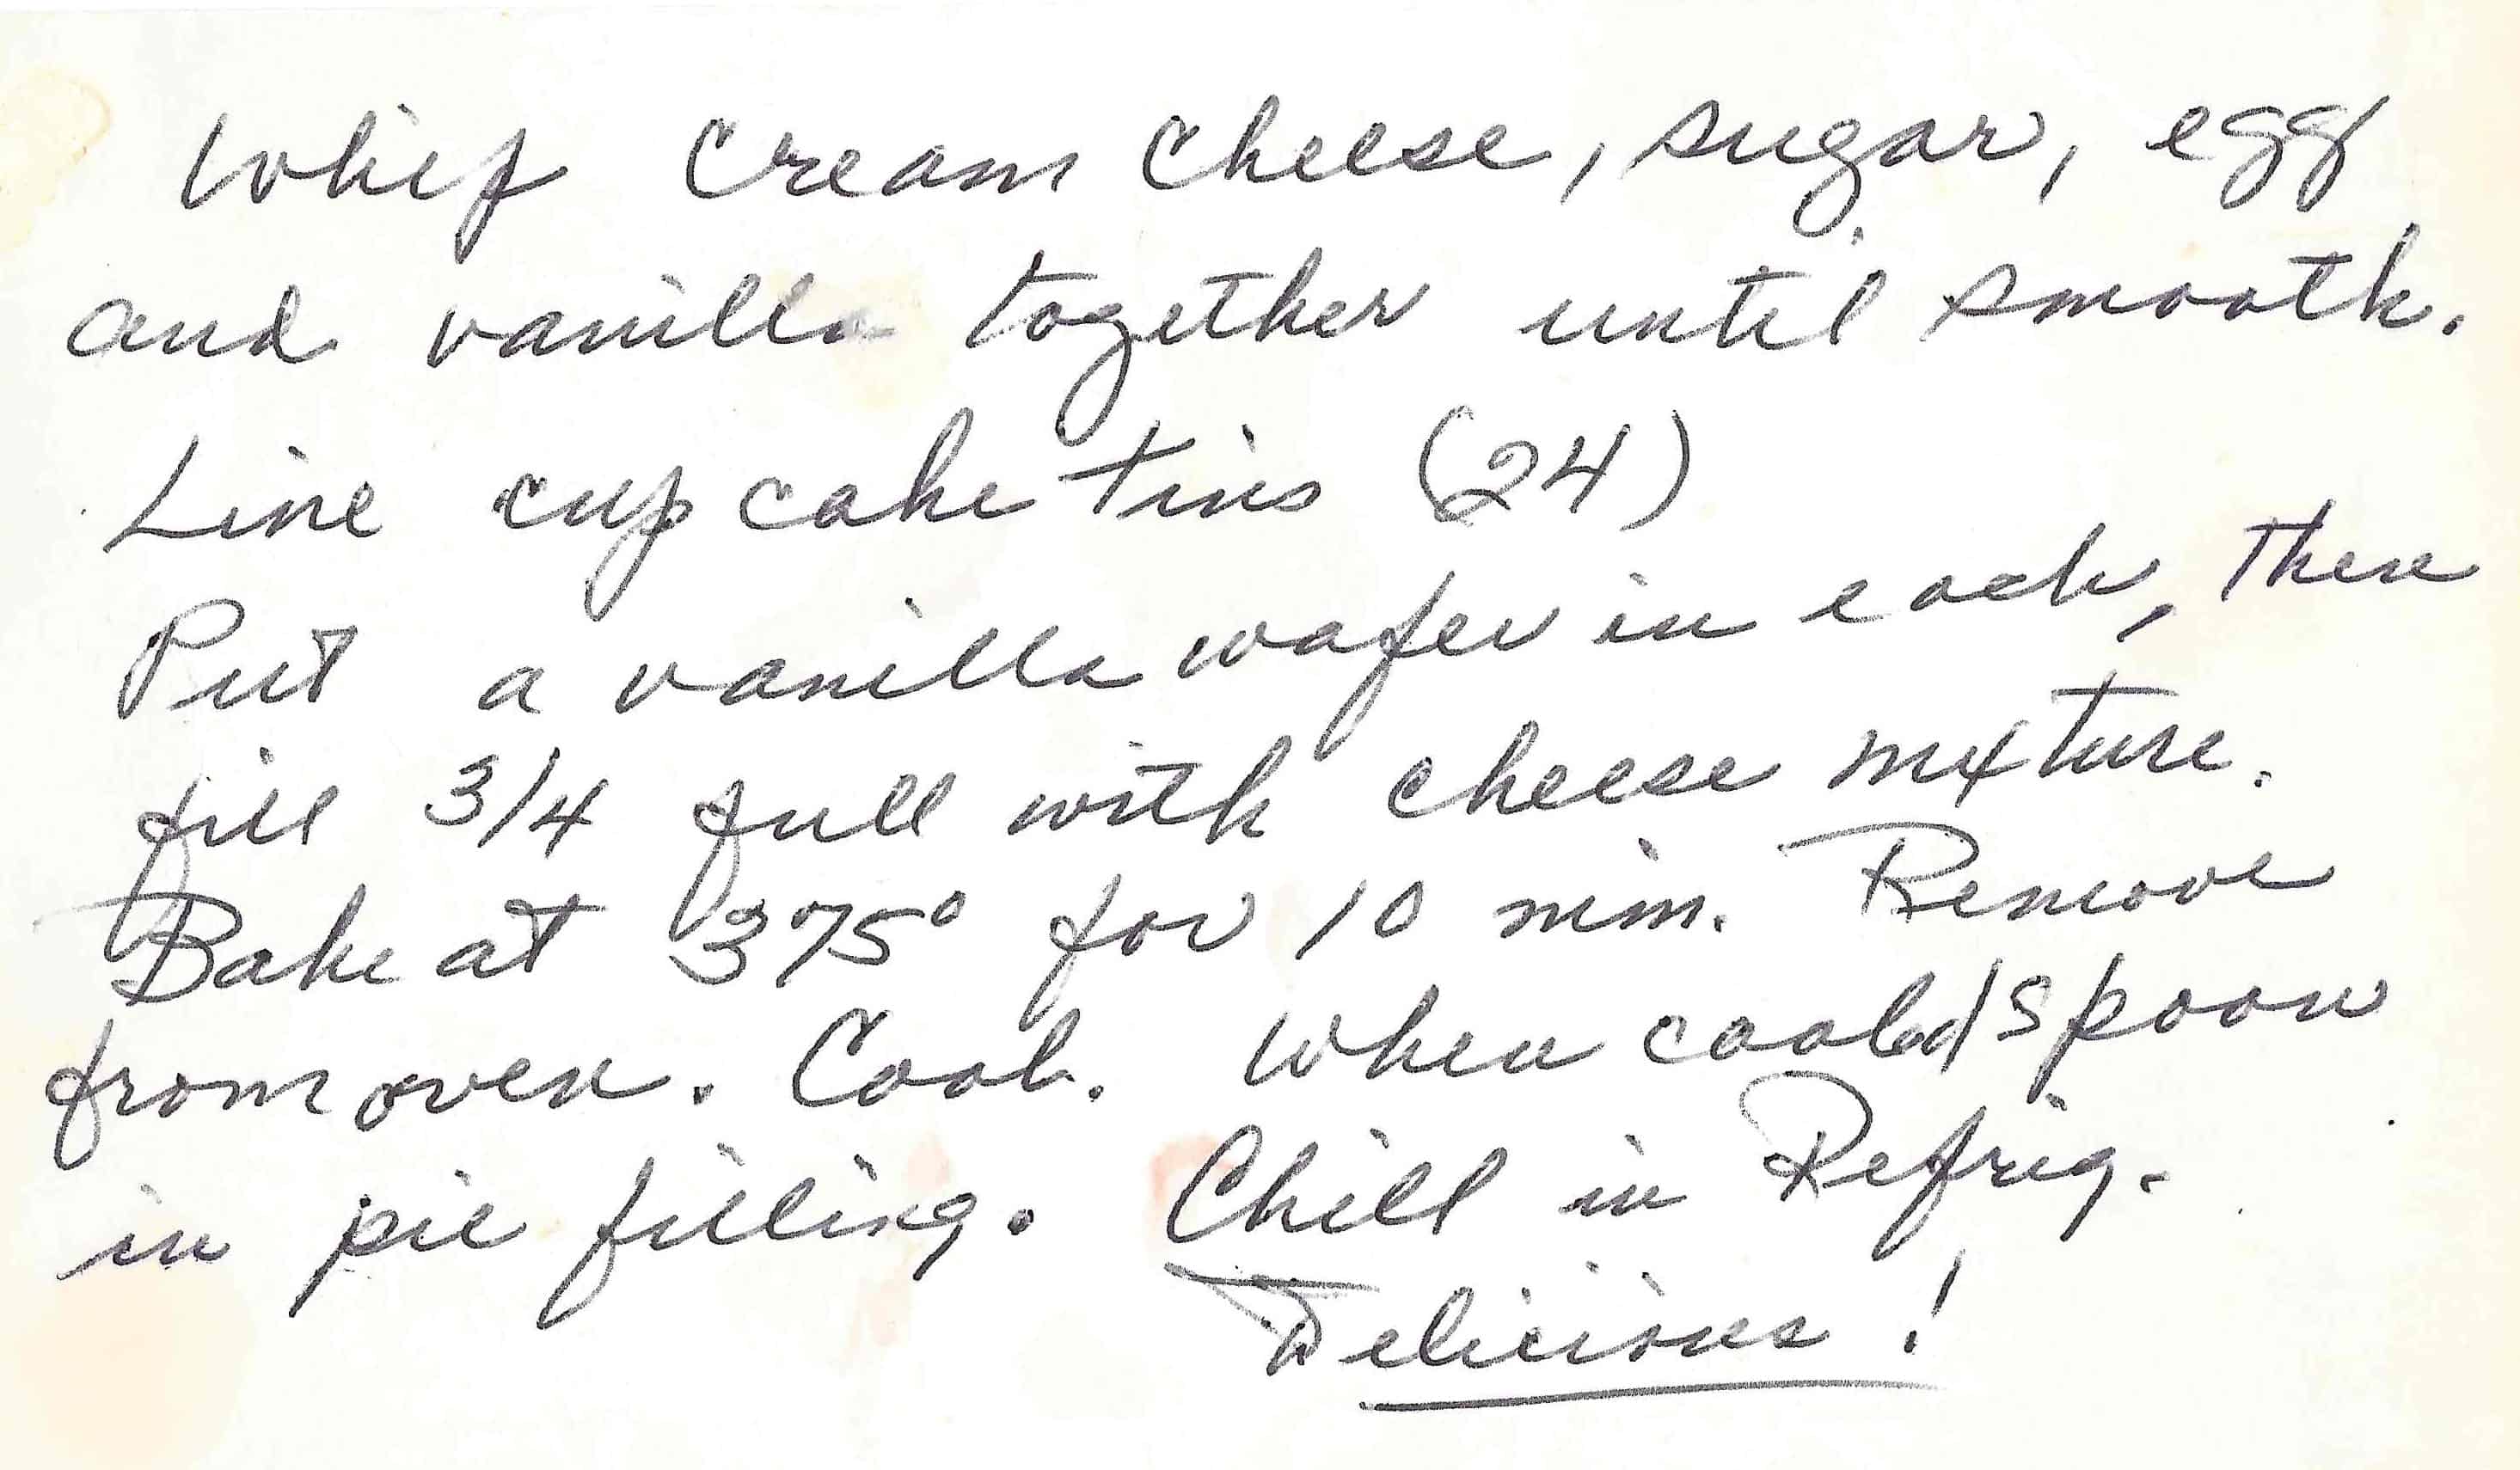 Whip cream cheese, sugar, egg
and vanilla together until smooth.
Line cup cake tins (24)
Put a vanilla wafer in each, then
fill 3/4 full with cheese mixture.
Bake at 375° for 10 min. Remove
from oven. Cool. When cooled spoon
in pie filling. Chill in Refrig.
Delicious!